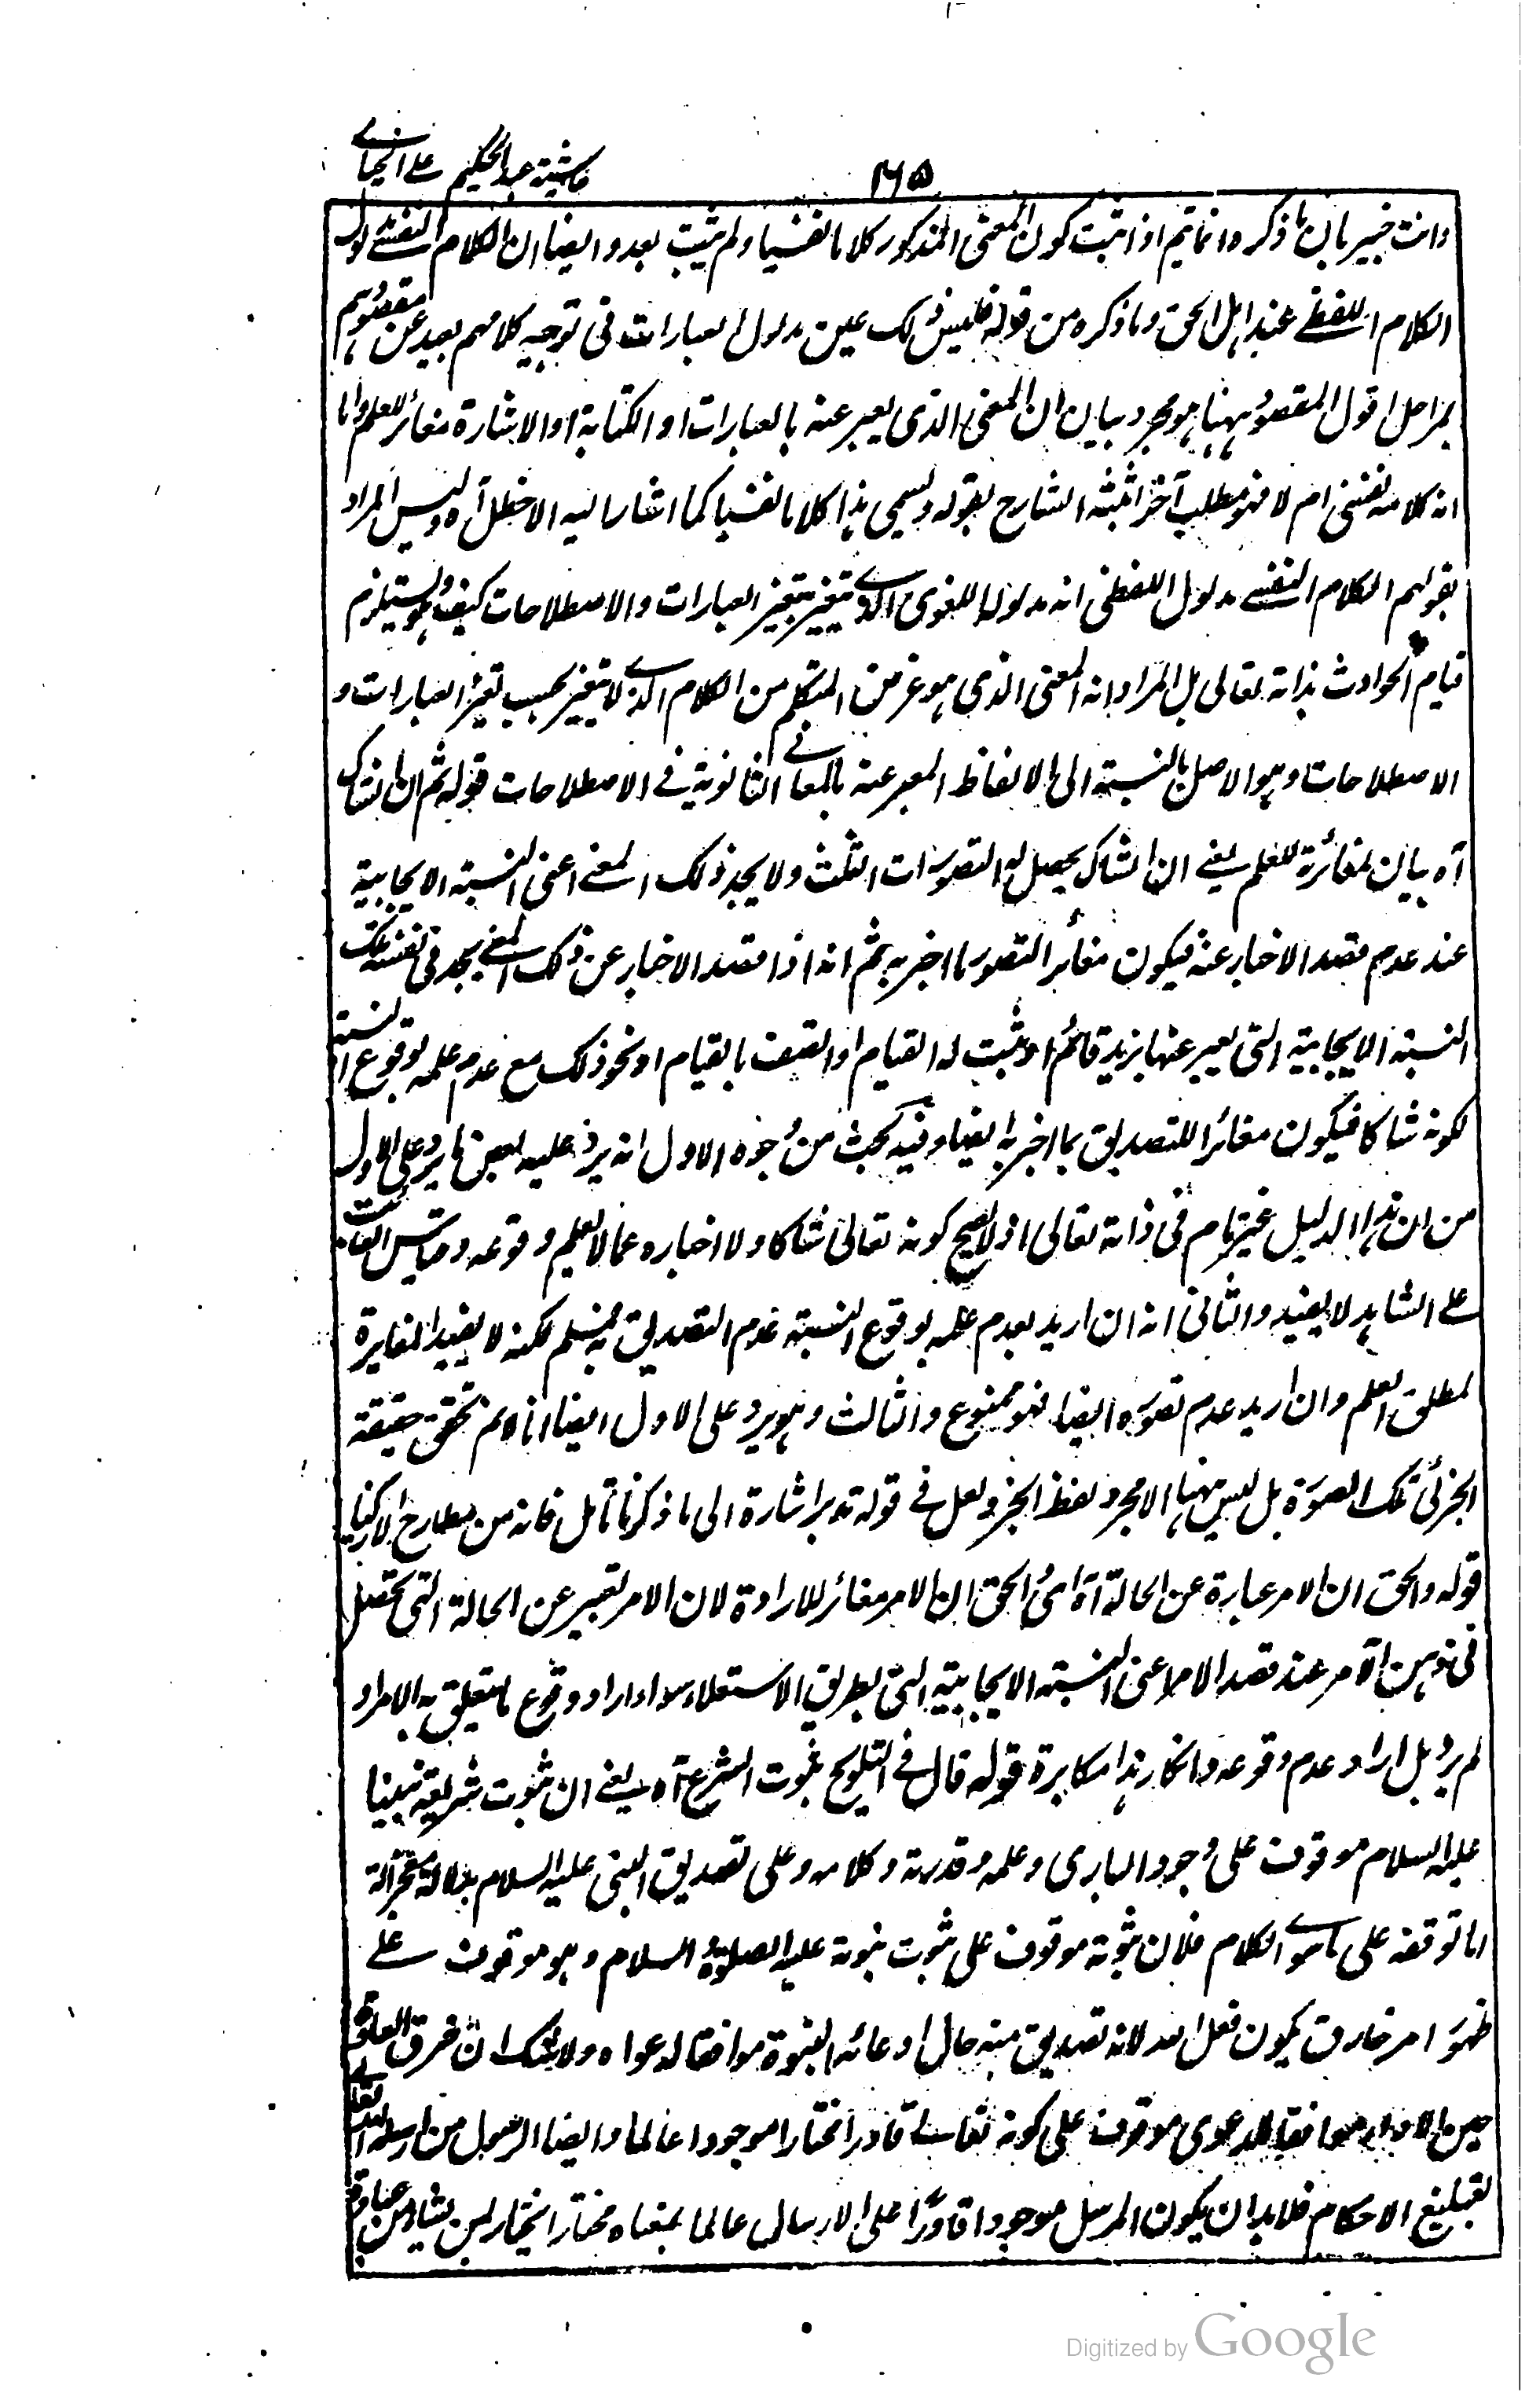 حاشية عبد الحكيم على الخيالي
٢٦٥
وانت خبير بان ما ذكره انما يتم اذا ثبت كون المعنى المذكور كلاما نفسيا ولم يثبت بعد وايضا ان الكلام النفسي مدلول
الكلام اللفظي عند اهل الحق وما ذكره من قوله فليس ذلك عين مدلول العبارات في توجيه كلامهم بعيد عن مقصودهم
بمراحل اقول المقصود ههنا هو مجرد بيان ان المعنى الذي يعبر عنه بالعبارات او الكتابة او الاشارة مغائر للعلم واما
انه كلام نفسي ام لا فهو مطلب آخر اثبته الشارح بقوله ويسمى هذا كلاما نفسيا كما اشار اليه الاخطل آه وليس المراد
بقولهم الكلام النفسي مدلول اللفظي انه مدلوله اللغوي الذي يتغير بتغير العبارات والاصطلاحات كيف وهو يستلزم
قيام الحوادث بذاته تعالى بل المراد انه المعنى الذي هو غرض المتكلم من الكلام الذي لا يتغير بحسب تغير العبارات و
الاصطلاحات وهو الاصل بالنسبة الى الالفاظ المعبر عنه بالمعاني الثانوية في الاصطلاحات قوله ثم ان الشاك
آه بيان لمغائرة للعلم يعني ان الشاك يحصل له التصورات الثلث ولا يجد ذلك المعنى اعني النسبة الايجابية
عند عدم قصد الاخبار عنه فيكون مغائر التصور ما اخبر به ثم انه اذا قصد الاخبار عن ذلك المعنى يجد في نفسه تلك
النسبة الايجابية التي يعبر عنها بزيد قائم او ثبت له القيام او اتصف بالقيام او نحو ذلك مع عدم علمه بوقوع النسبة
لكونه شاكا فيكون مغائرا للتصديق بما اخبر به ايضا وفيه بحث من وجوه الاول انه يرد عليه بعض ما يرد على الاول
من ان هذا الدليل غير تام في ذاته تعالى اذ لا يصح كونه تعالى شاكا ولا اخباره عما لا يعلم وقوعه وقياس الغائب
على الشاهد لا يفيد والثاني انه ان اريد بعدم علمه بوقوع النسبة عدم التصديق به فمسلم لكنه لا يفيد المغايرة
لمطلق العلم وان اريد عدم تصوره ايضا فهو ممنوع والثالث وهو يرد على الاول ايضا انا لا نم تحقق حقيقة
الجزئي تلك الصورة بل ليس ههنا الا مجرد لفظ الخبر ولعل في قوله تدبر اشارة الى ما ذكرنا تأمل فانه من مطارح الاذكياء
قوله والحق ان الامر عبارة عن الحالة آه اي الحق ان الامر مغائر للارادة لان الامر تعبير عن الحالة التي تحصل
في ذهن الآمر عند قصد الامر اعني النسبة الايجابية التي بطريق الاستعلاء سواء اراد وقوع ما يتعلق به الامر او
لم يرد بل اراد عدم وقوعه وانكار هذا مكابرة قوله قال في التلويح ثبوت الشرع آه يعني ان ثبوت شريعة نبينا
عليه السلام موقوف على وجود الباري وعلمه وقدرته وكلامه وعلى تصديق النبي عليه السلام بدلالة معجزاته
اما توقفه على ما سوى الكلام فلان ثبوته موقوف على ثبوت نبوته عليه الصلوة والسلام وهو موقوف على
ظهور امر خارق يكون فعل الله لانه تصديق منه حال ادعائه النبوة موافقا لدعواه ولا شك ان خرق العادة
حين الادعاء موافقا للدعوى موقوف على كونه تعالى قادرا مختارا موجودا عالما وايضا الرسول من ارسله الله تعالى
لتبليغ الاحكام فلا بد ان يكون المرسل موجودا قادرا على الارسال عالما بمعناه مختارا يختار لمن يشاء من عباده
Digitized by Google